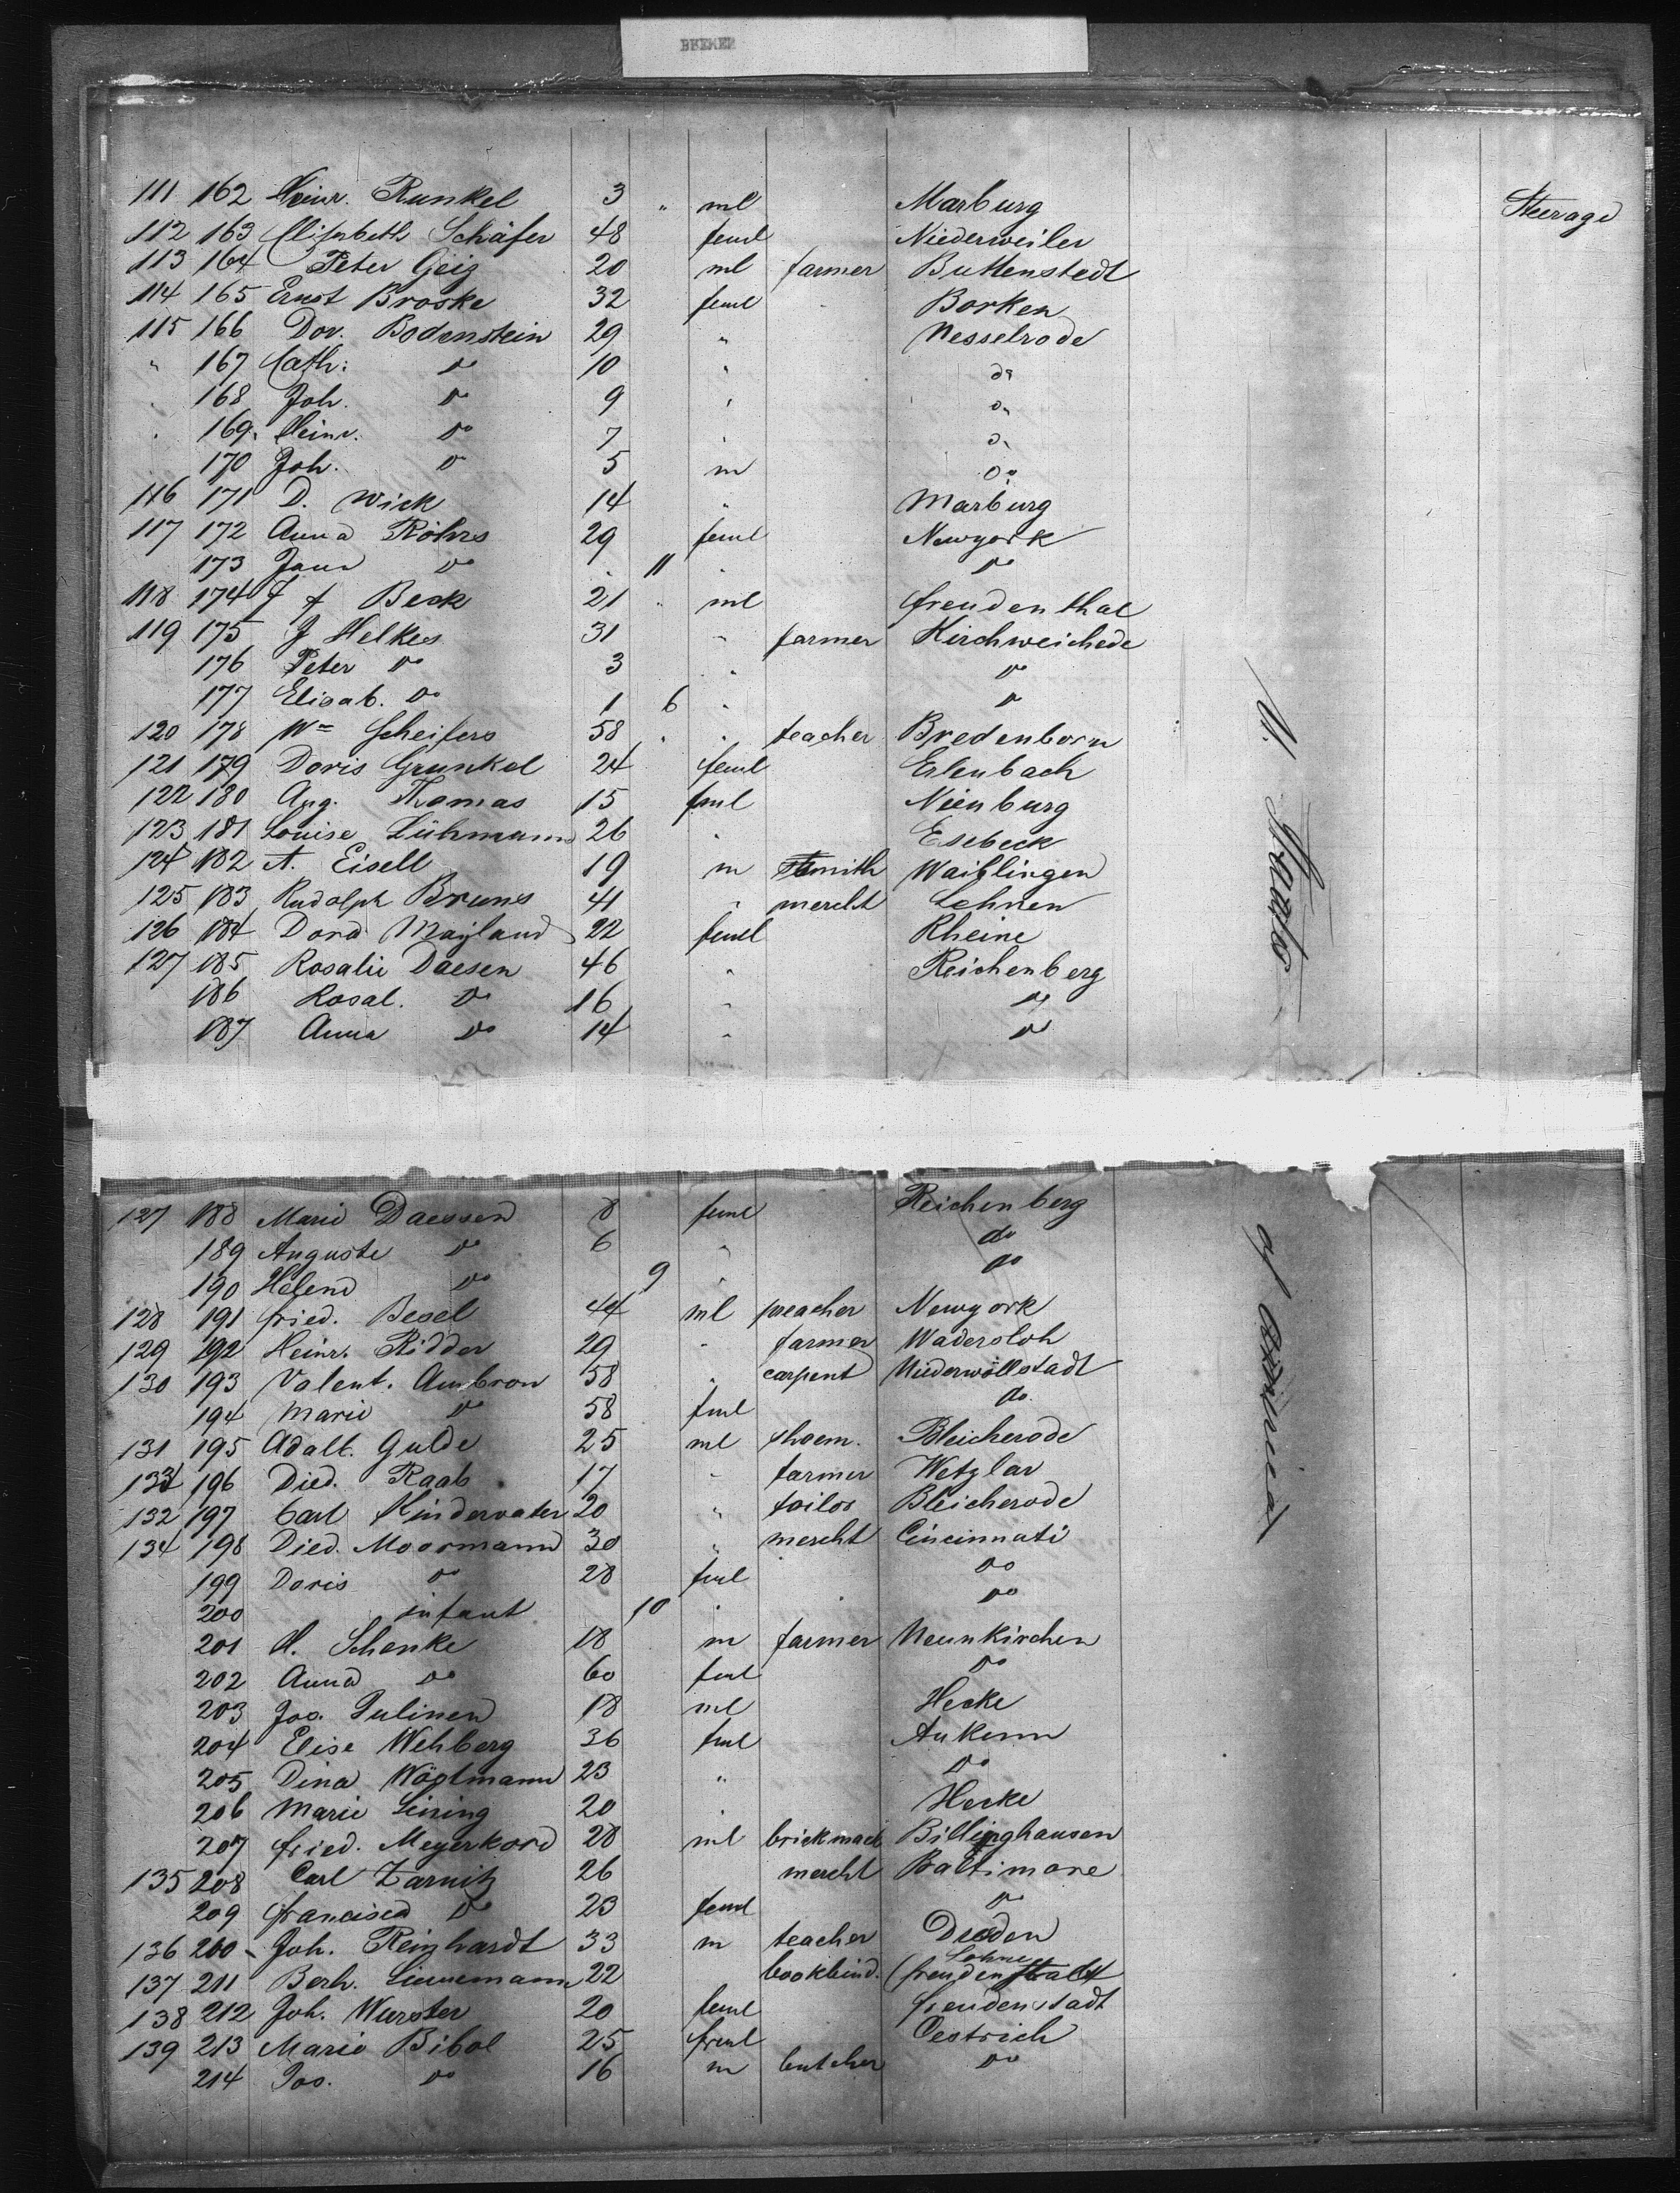 BREMEN
111 162 Heinr. Runkel 3 " ml Marburg Steerage
112 163 Elisabeth Schäfer 48 feml Niederweiler
113 164 Peter Geig 20 ml farmer Buttenstedt
114 165 Ernst Broske 32 feml Borken
115 166 Dor. Bodenstein 29 " Nesselrode
" 167 Cath: do 10 " do
168 Joh. do 9 " do
169 Heinr. do 7 " do
170 Joh. do 5 m do
116 171 D. Wick 14 " Marburg
117 172 Anna Röhrs 29 feml Newyork
173 Jann do 11 " do
118 174 J f Beck 21 " ml freudenthal
119 175 J Helkes 31 " farmer Kirchweichede
176 Peter do 3 " do
177 Elisab. do 1 6 " do
120 178 Wm Scheifers 58 " " teacher Bredenborn
121 179 Doris Grunkel 24 feml Erlenbach
122 180 Aug. Thomas 15 fml Nienburg
123 181 Louise Lührmann 26 " Esebeck
124 182 A. Eisell 19 m smith Waiblingen
125 183 Rudolph Bruns 41 " mercht Lehnen
126 184 Dora Mayland 22 feml Rheine
127 185 Rosalie Daesen 46 " Reichenberg
186 Rosal. do 16 " do
187 Anna do 14 " do
U. States
127 188 Marie Daessen 8 feml Reichenberg
189 Auguste do 6 " do
190 Helene do 9 " do
128 191 fried. Besel 44 ml preacher Newyork
129 192 Heinr. Ridder 29 " farmer Wadersloh
130 193 Valent. Ambron 58 " carpent Niederwöllstadt
194 Marie do 58 fml do.
131 195 Adalb. Gulde 25 ml shoem. Bleicherode
133 196 Died. Raab 17 " farmer Wetzlar
132 197 Carl Kindervater 20 " tailor Bleicherode
134 198 Died. Moormann 30 " mercht Cincinnati
199 Doris do 28 fml do
200 infant 10 " do
201 H. Schenke 18 m farmer Neunkirchen
202 Anna do 60 fml do
203 Jos. Tulinen 18 ml Hecke
204 Elise Wehberg 36 fml Ankum
205 Dina Wögtmann 23 " do
206 Marie Lining 20 " Hecke
207 fried. Meyerkord 28 ml brickmack Billinghausen
135 208 Carl Zarnitz 26 mercht Baltimore
209 francisca do 23 feml do
136 210 Joh. Reinhardt 33 m teacher Dresden
137 211 Berh. Linnemann 22 bookbind. Lohne freudenstadt
138 212 Joh. Wurster 20 feml freudenstadt
139 213 Marie Bibol 25 freml Oestrich
214 Jos. do 16 m butcher do
of America